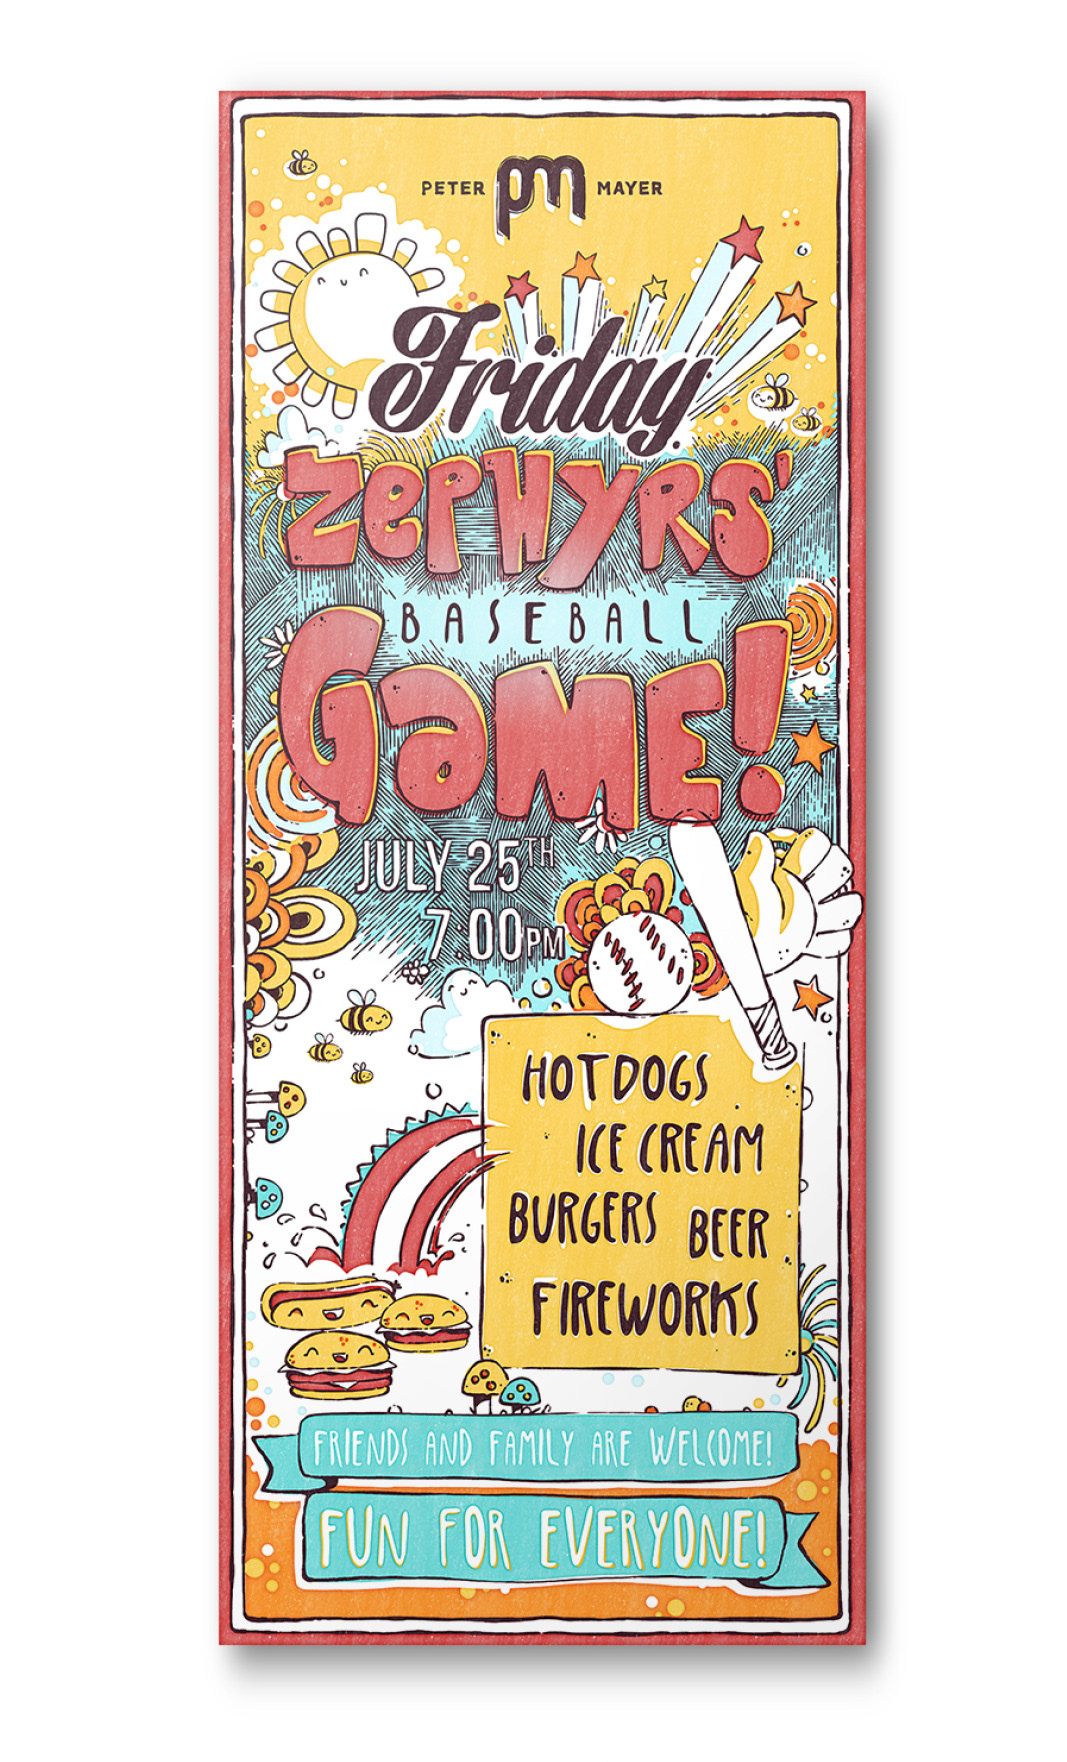 PETER pm MAYER
Friday
ZePHYRS'
BASEBALL
GaME!
JULY 25TH
7:00PM
HOTDOGS
ICE CREAM
BURGERS BEER
FIREWORKS
FRIENDS AND FAMILY ARE WELCOME!
FUN FOR EVERYONE!